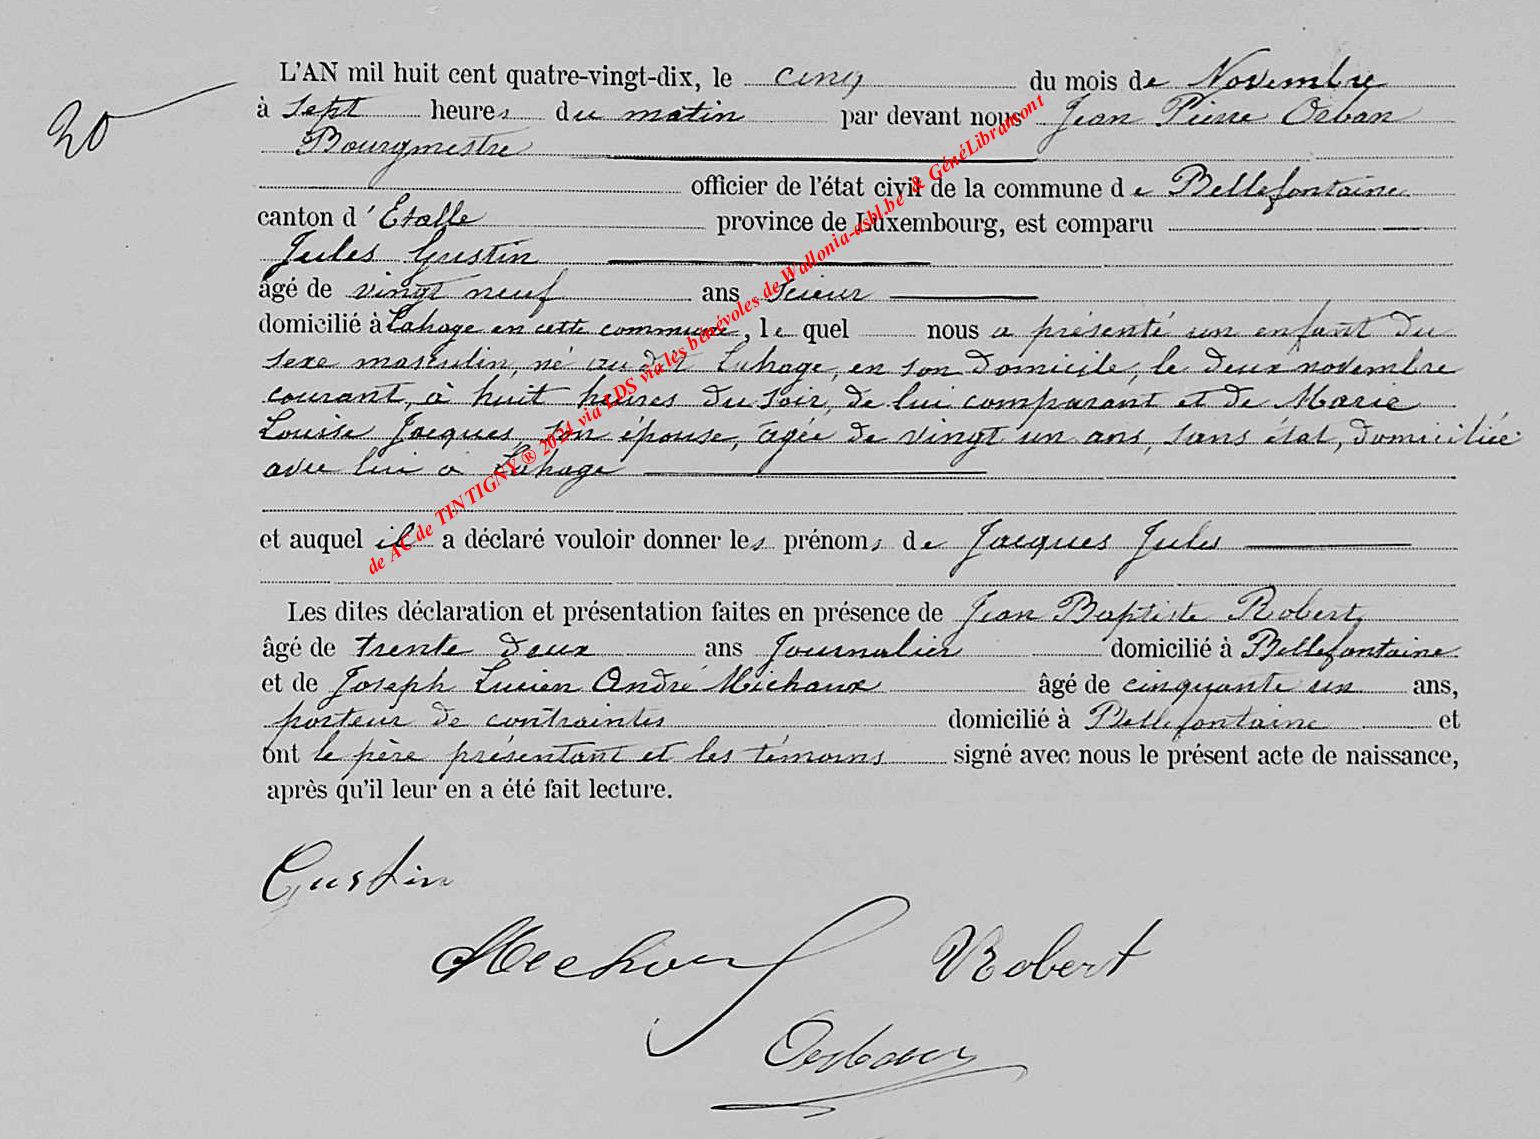 20
L'AN mil huit cent quatre-vingt-dix, le cinq du mois de Novembre
à sept heures du matin par devant nous Jean Pierre Orban
Bourgmestre
officier de l'état civil de la commune de Bellefontaine
canton d'Etalle province de Luxembourg, est comparu
Jules Gustin
âgé de vingt neuf ans Scieur
domicilié à Lahage en cette commune, le quel nous a présenté un enfant du
sexe masculin, né au dit Lahage, en son domicile, le deux novembre
courant, à huit heures du soir, de lui comparant et de Marie
Louise Jacques son épouse, âgée de vingt un ans, sans état, domiciliée
avec lui à Lahage
et auquel il a déclaré vouloir donner les prénoms de Jacques Jules
Les dites déclaration et présentation faites en présence de Jean Baptiste Robert
âgé de trente deux ans Journalier domicilié à Bellefontaine
et de Joseph Lucien André Michaux âgé de cinquante un ans,
porteur de contraintes domicilié à Bellefontaine et
ont le père présentant et les témoins signé avec nous le présent acte de naissance,
après qu'il leur en a été fait lecture.
Gustin
Michaux Robert
Orban
de AC de TINTIGNY ® 2024 via LDS via les bénévoles de Wallonia-asbl.be & GénéLibramont